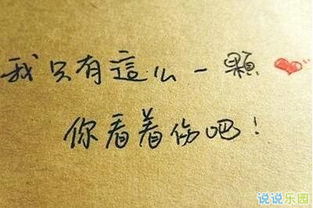 我只有這么一顆❤
你看着伤吧！
说说乐园